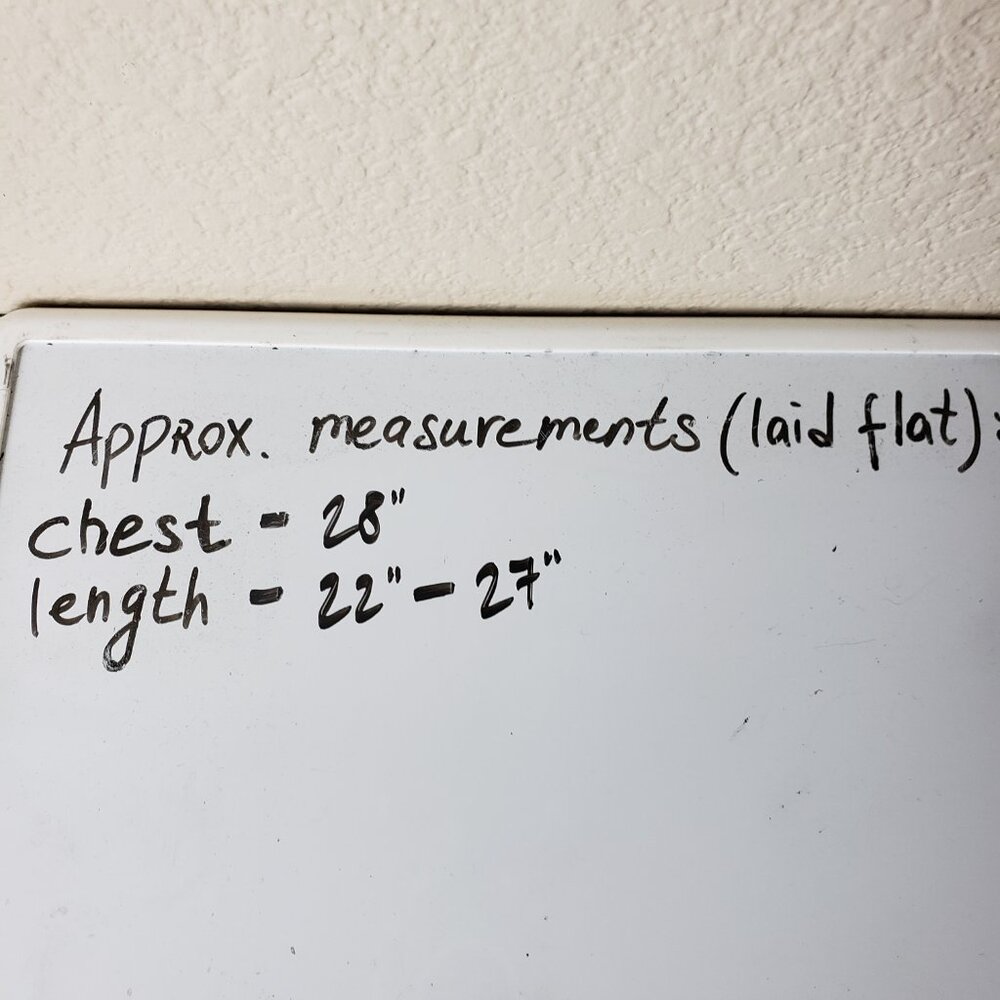 Approx. measurements (laid flat):
chest - 28"
length - 22" - 27"